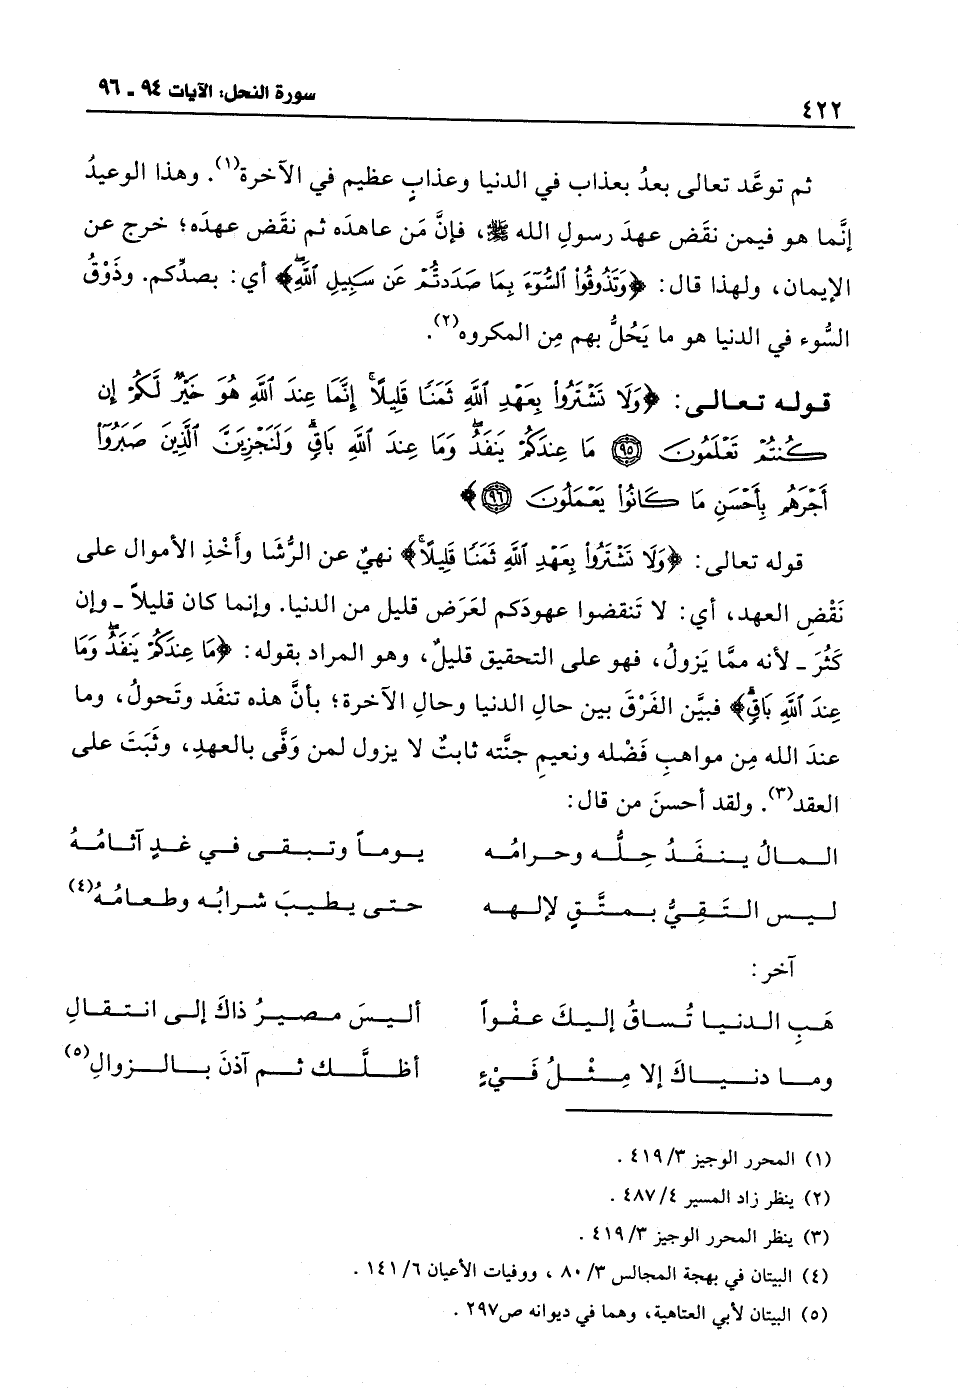 ٤٢٢ سورة النحل: الآيات ٩٤ ـ ٩٦
ثم توعَّد تعالى بعدُ بعذاب في الدنيا وعذابٍ عظيم في الآخرة(١). وهذا الوعيدُ
إنَّما هو فيمن نقَض عهدَ رسولِ الله ﷺ، فإنَّ مَن عاهدَه ثم نقَض عهدَه؛ خرج عن
الإيمان، ولهذا قال: ﴿وَتَذُوقُواْ ٱلسُّوٓءَ بِمَا صَدَدتُّمْ عَن سَبِيلِ ٱللَّهِۖ﴾ أي: بصدِّكم. وذَوْقُ
السُّوء في الدنيا هو ما يَحُلُّ بهم مِن المكروه(٢).
قوله تعالى: ﴿وَلَا تَشْتَرُواْ بِعَهْدِ ٱللَّهِ ثَمَنًا قَلِيلًاۚ إِنَّمَا عِندَ ٱللَّهِ هُوَ خَيْرٌ لَّكُمْ إِن
كُنتُمْ تَعْلَمُونَ ۝٩٥ مَا عِندَكُمْ يَنفَدُۖ وَمَا عِندَ ٱللَّهِ بَاقٍۗ وَلَنَجْزِيَنَّ ٱلَّذِينَ صَبَرُوٓاْ
أَجْرَهُم بِأَحْسَنِ مَا كَانُواْ يَعْمَلُونَ ۝٩٦﴾
قوله تعالى: ﴿وَلَا تَشْتَرُواْ بِعَهْدِ ٱللَّهِ ثَمَنًا قَلِيلًاۚ﴾ نهيٌ عن الرُّشَا وأَخْذِ الأموال على
نَقْضِ العهد، أي: لا تَنقضوا عهودَكم لعَرَض قليل من الدنيا. وإنما كان قليلاً ـ وإن
كَثُرَ ـ لأنه ممَّا يَزولُ، فهو على التحقيق قليلٌ، وهو المراد بقوله: ﴿مَا عِندَكُمْ يَنفَدُۖ وَمَا
عِندَ ٱللَّهِ بَاقٍۗ﴾ فبيَّن الفَرْقَ بين حالِ الدنيا وحالِ الآخرة؛ بأنَّ هذه تنفَد وتَحولُ، وما
عندَ الله مِن مواهبِ فَضْله ونعيمِ جنَّته ثابتٌ لا يزول لمن وَفَّى بالعهدِ، وثَبَتَ على
العقد(٣). ولقد أحسنَ من قال:
المالُ ينفَدُ حِلُّه وحرامُه يوماً وتبقى في غدٍ آثامُهُ
ليس التَقِيُّ بمتَّقٍ لإلهه حتى يطيبَ شرابُه وطعامُهُ(٤)
آخر:
هَبِ الدنيا تُساقُ إليكَ عفْواً أليسَ مصيرُ ذاكَ إلى انتقالِ
وما دنياكَ إلا مِثْلُ فَيْءٍ أظلَّك ثم آذنَ بالزوالِ(٥)
(١) المحرر الوجيز ٤١٩/٣ .
(٢) ينظر زاد المسير ٤٨٧/٤ .
(٣) ينظر المحرر الوجيز ٤١٩/٣ .
(٤) البيتان في بهجة المجالس ٨٠/٣ ، ووفيات الأعيان ١٤١/٦ .
(٥) البيتان لأبي العتاهية، وهما في ديوانه ص٢٩٧ .